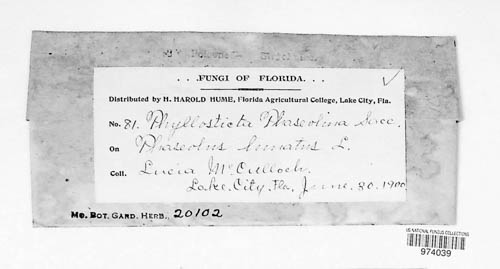 . . . FUNGI OF FLORIDA. . . .
Distributed by H. HAROLD HUME, Florida Agricultural College, Lake City, Fla.
No. 81. Phyllosticta Phaseolina Sacc.
On Phaseolus lunatus L.
Coll. Lucia McCulloch.
Lake City, Fla, June. 30. 1900
MO. BOT. GARD. HERB., 20102
US NATIONAL FUNGUS COLLECTIONS
974039